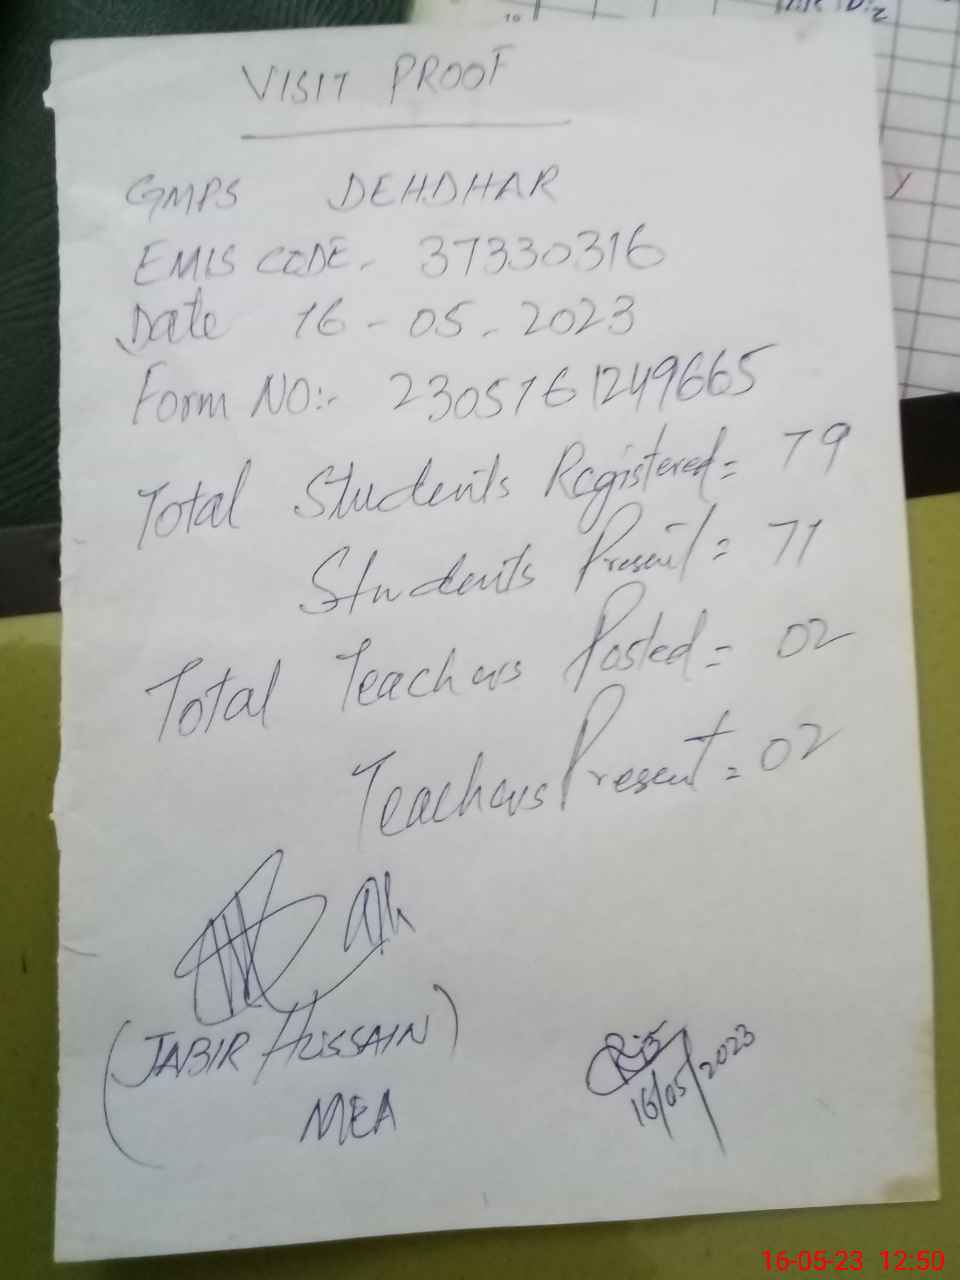 10
VISIT PROOF
GMPS DEHDHAR
EMIS CODE. 37330316
Date 16-05-2023
Form NO:- 2305161249665
Total Students Registered = 79
Students Present = 71
Total Teachers Posted = 02
Teachers Present = 02
(JABIR HUSSAIN)
MEA
16/05/2023
16-05-23 12:50